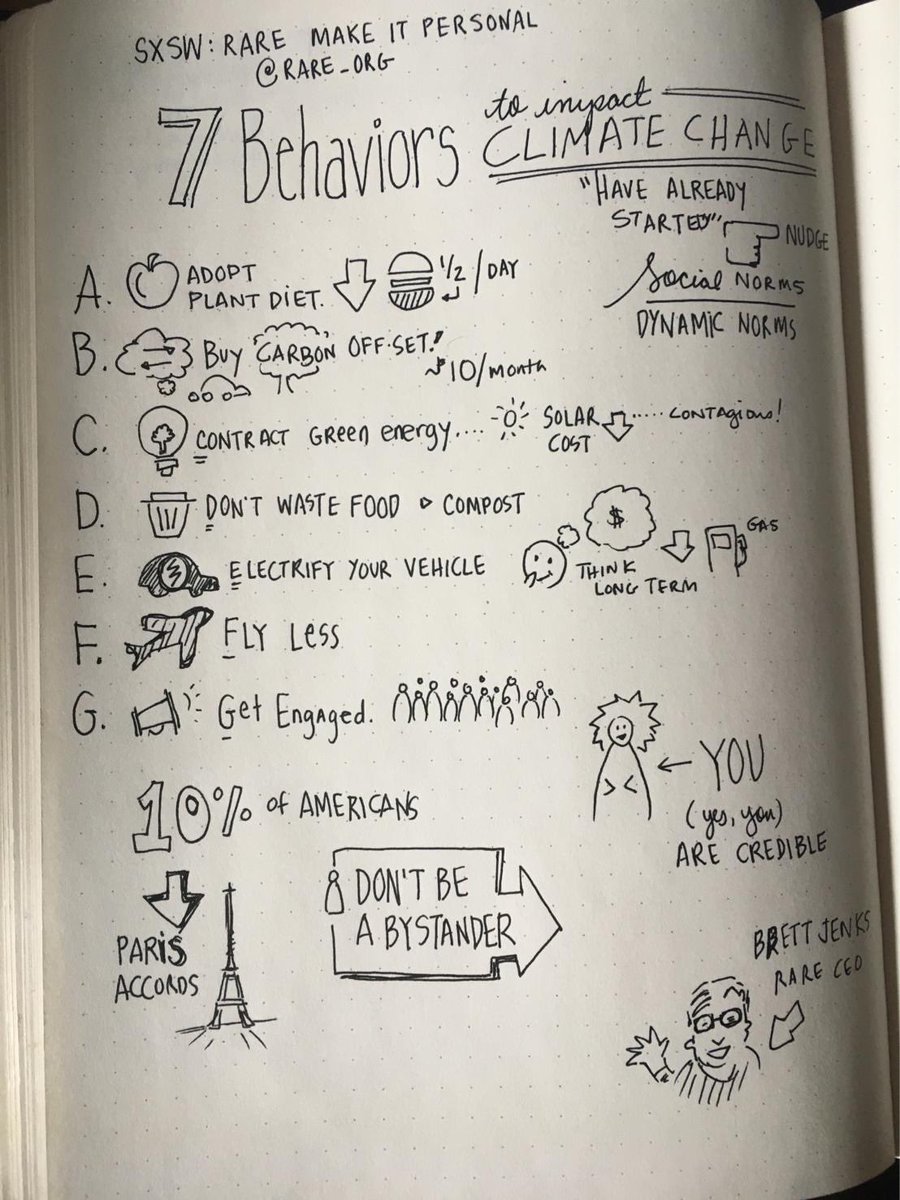 SXSW: RARE MAKE IT PERSONAL
@RARE_ORG
7 Behaviors to impact
CLIMATE CHANGE
"HAVE ALREADY
STARTED"
NUDGE
Social NORMS
DYNAMIC NORMS
A. ADOPT
PLANT DIET. 1/2/DAY
B. BUY CARBON OFF-SET!
~$10/month
C. CONTRACT Green energy.... SOLAR
COST ..... CONTAGIOUS!
D. DON'T WASTE FOOD COMPOST
$
GAS
E. ELECTRIFY YOUR VEHICLE
THINK
LONG TERM
F. FLY Less
G. Get Engaged.
YOU
(yes, you)
ARE CREDIBLE
10% of AMERICANS
PARIS
ACCORDS
DON'T BE
A BYSTANDER
BRETT JENKS
RARE CEO